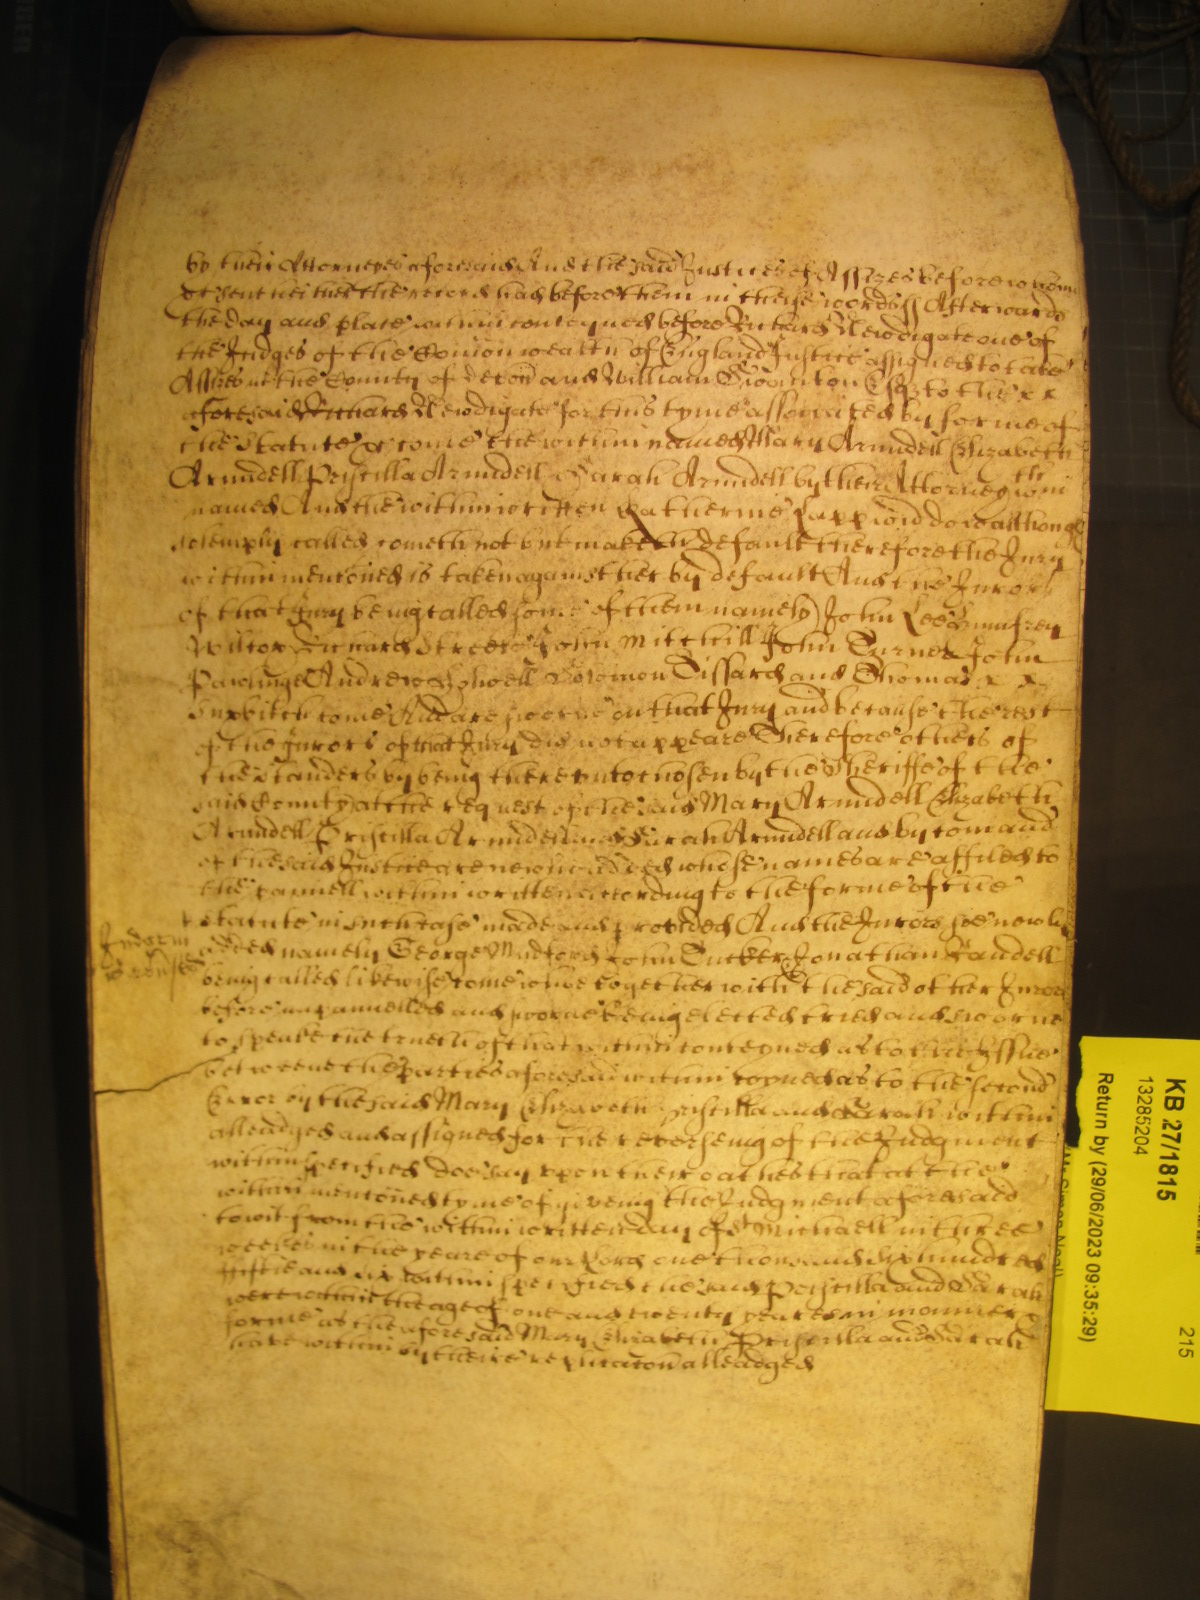 by their Attorneyes aforesaid And the said Justices of Assizes before whom
&c sent hither the record had before them in these words ss Afterwards
the day and place within conteyned before Richard Newdigate one of
the Judges of the Comon wealth of England Justice assigned to take
Assizes in the County of Devon and William Esqr to the x x
aforesaid Richard Newdigate for this tyme associated by forme of
the Statute &c come the within named Mary Arundell Elizabeth
Arundell Priscilla Arundell Sarah Arundell by their Attorney within
named And the within written Katherine doe although
solemply called cometh not but maketh default therefore the Jury
within mentioned is taken against her by default And the Jurors
of that Jury being called some of them namely John Lee Humfrey
Wilton Richard Streete John Mitchill John Turner John
Pawlinge Andrew Solomon and Thomas x x
come And are sworne on that Jury and because the rest
of the Jurors of that Jury did not appeare Therefore others of
the standers by being thereunto chosen by the Sheriffe of the
said County att the request of the said Mary Arundell Elizabeth
Arundell Priscilla Arundell and Sarah Arundell and by comand
of the said Justice are newly added whose names are affiled to
the pannell within written according to the forme of the
statute in such case made and provided And the Jurors soe newly
added namely George Mudford John Tucker Jonathan
being called likewise come whoe together with the said other Jurors
before impannelled and sworne being elected tried and sworne
to speake the trueth of that within conteyned as to the Issue
betweene the parties aforesaid within ioyned as to the second
Error by the said Mary Elizabeth Priscilla and Sarah within
alleadged and assigned for the reverseing of the Judgment
within specified doe say vpon their oathes that at the
within mentioned tyme of giveing the Judgment aforesaid
to wit from the within written day of St Michaell in three
weekes in the yeare of our Lord one thousand six hundred
fiftie and six within specified the said Priscilla and Sarah
were within the age of one and twenty yeares in manner &
forme as the aforesaid Mary Elizabeth Priscilla and Sarah
have within by theire replicacon alleadged
KB 27/1815
13285204
Return by (29/06/2023 09:35:29)
215